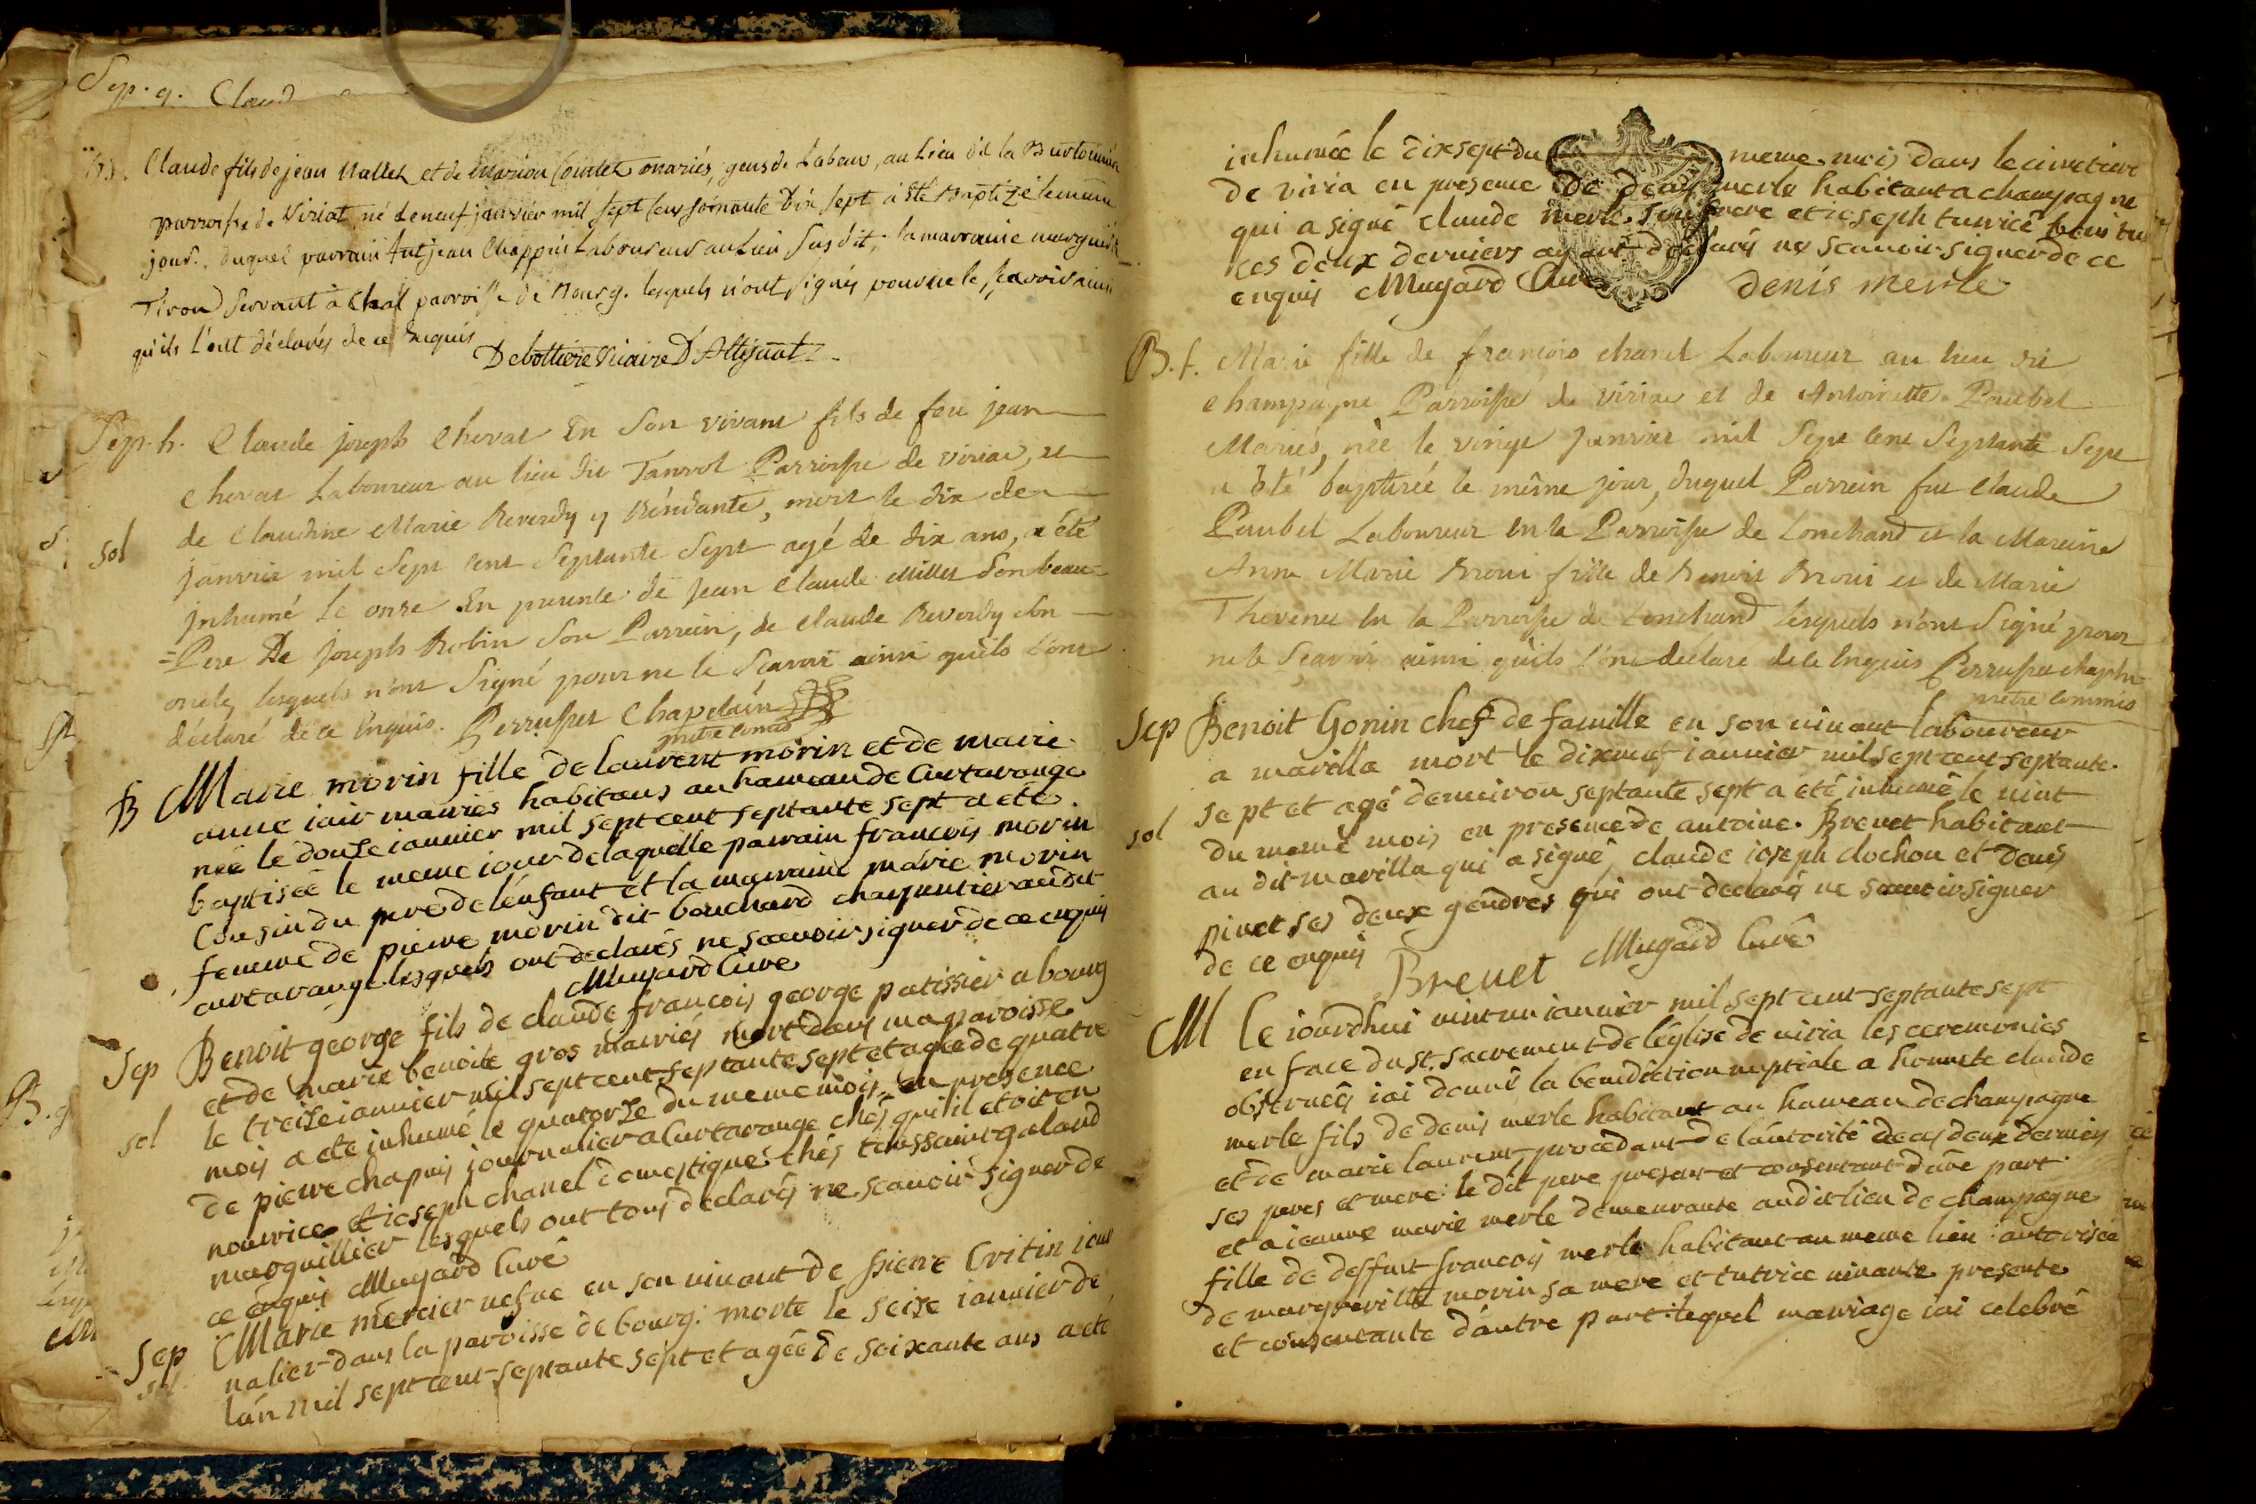 Sep. g. Claud
Claude fils de jean Mallet et de Marion Cointet mariés, gens de Labeur, au Lieu dit la
parroisse de Viriat né le neuf janvier mil sept cens soixante dix sept a été Baptizé le meme
jour. duquel parrain fut jean Chappuis Laboureur au Lieu susdit, la marraine marguerite
Tiron servant à Chal parroisse de Bourg. lesquels n'ont signés pour ne le sçavoir ainsi
qu'ils l'ont déclarés de ce Enquis
Debottiere Vicaire D'Attignat
Sep. h. Claude joseph Cherat En Son vivant fils de feu jean
Cherat Laboureur au lieu dit Tanvol Parroisse de viriat, et
de Claudine Marie Reverdy y Résidante, mort le dix de
sol janvier mil Sept Cent Septante Sept agé de dix ans, a été
jnhumé le onze En presence de jean Claude Millet son beau
=Pere De joseph Robin Son Parrein, de Claude Reverdy son
oncle, lesquels n'ont Signé pour ne le Scavoir ainsi qu'ils l'ont
déclaré de ce Enquis. Perrusset Chapelain
prêtre Comis
B Marie morin fille de laurent morin et de marie
anne iair mariés habitans au hameau de Curtarange
née le douse iannier mil sept cent septante sept a eté
baptisée le meme iour de laquelle parrain francois morin
Cousin du pere de l'enfant et la marraine marie morin
femme de pierre morin dit bouchard charpentier audit
curtarange lesquels ont declarés ne scavoir signer de ce enquis
Mugard Curé
Sep Benoit george fils de claude francois george patissier a bourg
et de marie benoite gros mariés mort dans ma paroisse
le treise iannier mil sept cent septante sept et agé de quatre
sol mois a eté inhumé le quatorse du meme mois en presence
de pierre chapuis iournalier a Curtarange chés qui il etoit en
nourrice et ioseph chanel domestique chés toussaint galand
marguillier lesquels ont tous declarés ne scavoir signer de
ce enquis Mugard Curé
Sep Marie mercier vefve en son vivant de pierre Critin iour
sol nalier dans la paroisse de bourg. morte le seise iannier de
l'an mil sept cent septante sept et agée de soixante ans a eté
inhumée le dix sept du meme mois dans le cimetiere
de viria en presence de denis merle habitant a champagne
qui a signé claude merle son frere et ioseph turrice
ces deux derniers ayant declarés ne scavoir signer de ce
enquis Mugard Curé denis merle
B. f. Marie fille de francois chanel Laboureur au lieu de
champagne Parroisse de viriat et de Antoinette Poubel
Mariés, née le vingt janvier mil Sept Cent Septante Sept
a été baptisée le même jour, duquel Parrein fut Claude
Paubel Laboureur En la Parroisse de Conchand et la Mareine
Anne Marie Broui fille de Benoit Broui et de Marie
Thevenet En la Parroisse de Conchand lesquels n'ont Signé pour
ne le Scavoir ainsi qu'ils l'ont declaré de ce Enquis Perrusset chapln
prêtre commis
Sep Benoit Gonin chef de famille en son vivant laboureur
a marilla mort le dixneuf iannier mil sept cent septante
sept et agé d'environ septante sept a eté inhumé le vint
sol du meme mois en presence de antoine Brevet habitant
au dit marilla qui a signé, claude ioseph clochon et denis
pivet ses deux gendres qui ont declarés ne scavoir signer
de ce enquis Brevet Mugard Curé
M Le iourdhui vint un iannier mil sept cent septante sept
en face du St. sacrement de l'église de viria les ceremonies
observées iai donné la benediction nuptiale a honnete claude
merle fils de denis merle habitant au hameau de champagne
et de marie laurent, procedant de l'autorité de ces deux derniers
ses peres et mere: le dit pere present et consentant d'une part
et a ieanne marie merle demeurante audit lieu de champagne
fille de deffunt francois merle habitant au meme lieu: autorisée
de margueritte morin sa mere et tutrice vivante presente
et consentante d'autre part: lequel marriage iai celebré